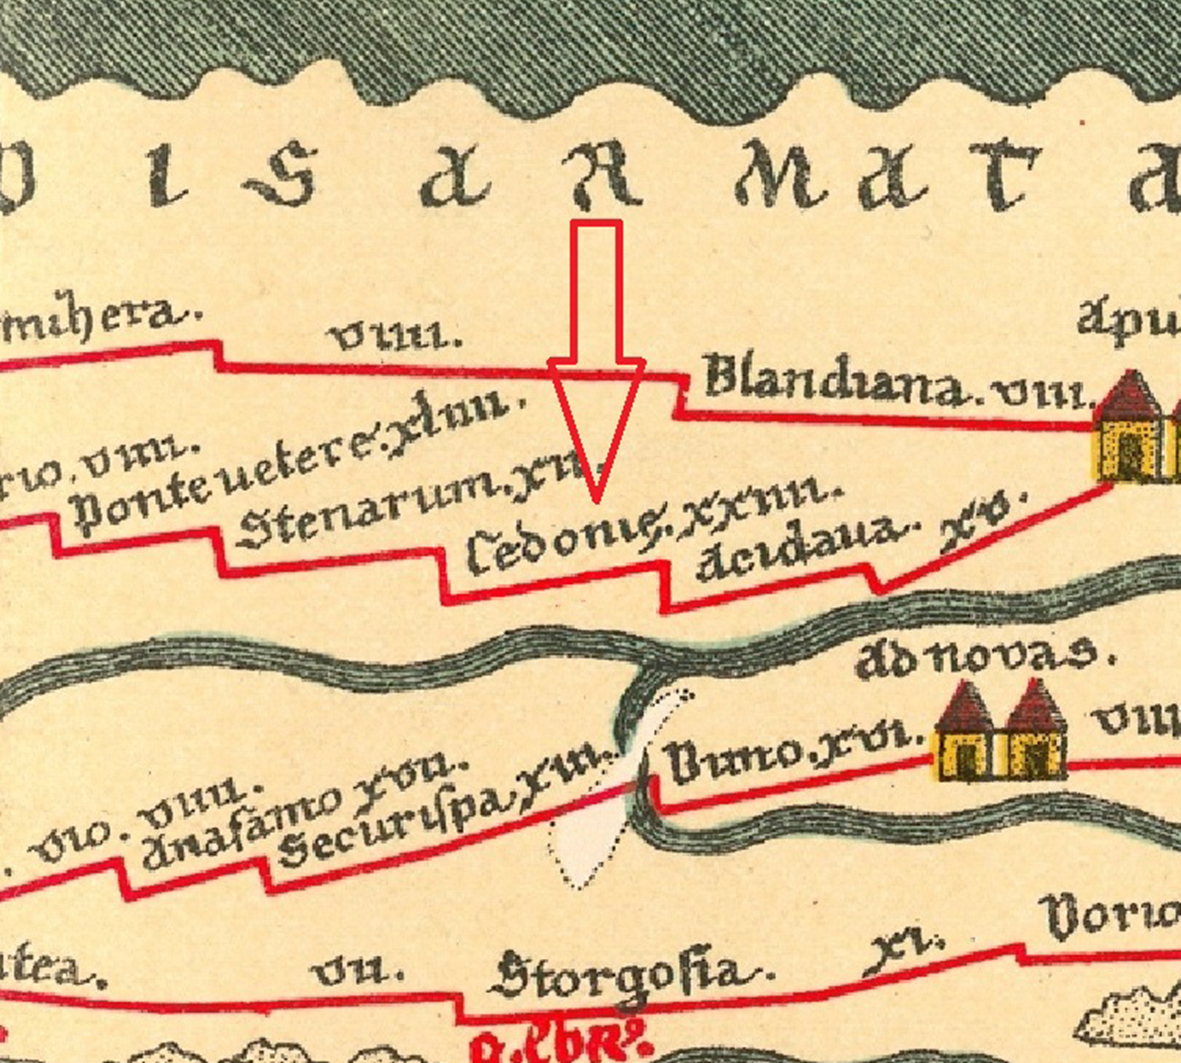 D I S A R M A T A
mihera.
VIIII.
Apu
Blandiana. VIII.
rio. VIIII.
Ponte uetere. XLIIII.
Stenarum. XII.
Cedonię. XXIIII.
Acidaua. XV.
Ad novas.
VIIII
Dimo. XVI.
VIO. VIIII.
Anasamo XVII.
Securispa XIII.
tea.
VII.
Storgosia.
XI.
Dorio